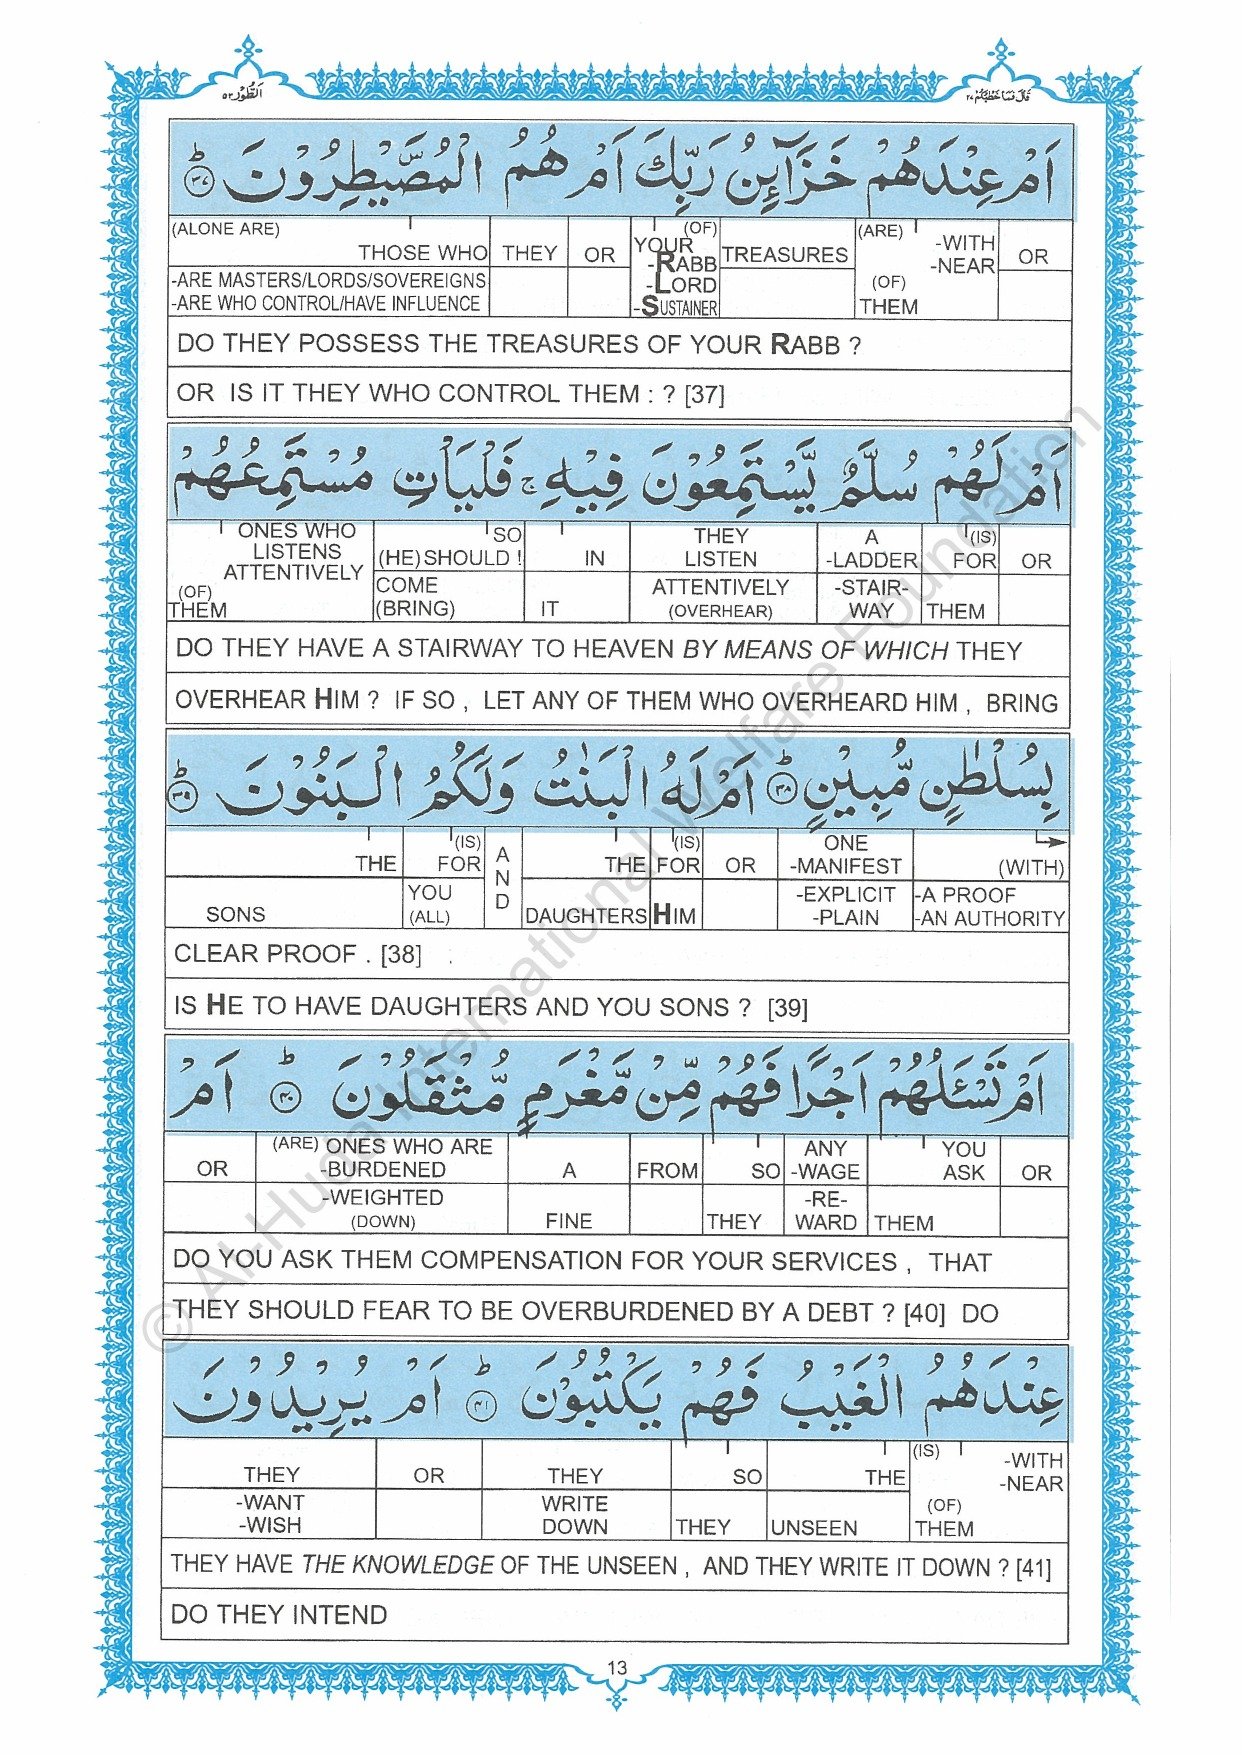 الطور ٥٢
قال فما خطبكم ٢٧
اَمْ عِنْدَهُمْ خَزَآئِنُ رَبِّكَ اَمْ هُمُ الْمُصَۜيْطِرُوْنَ ؕ ٣٧
(ALONE ARE) THOSE WHO THEY OR (OF) YOUR -RABB TREASURES (ARE) -WITH -NEAR OR
-ARE MASTERS/LORDS/SOVEREIGNS -LORD (OF)
-ARE WHO CONTROL/HAVE INFLUENCE -SUSTAINER THEM
DO THEY POSSESS THE TREASURES OF YOUR RABB ?
OR IS IT THEY WHO CONTROL THEM : ? [37]
اَمْ لَهُمْ سُلَّمٌ يَّسْتَمِعُوْنَ فِيْهِ ۚ فَلْيَاْتِ مُسْتَمِعُهُمْ
ONES WHO SO THEY A (IS)
LISTENS (HE)SHOULD ! IN LISTEN -LADDER FOR OR
ATTENTIVELY COME ATTENTIVELY -STAIR-
(OF) THEM (BRING) IT (OVERHEAR) WAY THEM
DO THEY HAVE A STAIRWAY TO HEAVEN BY MEANS OF WHICH THEY
OVERHEAR HIM ? IF SO , LET ANY OF THEM WHO OVERHEARD HIM , BRING
بِسُلْطٰنٍ مُّبِيْنٍ ؕ ٣٨ اَمْ لَهُ الْبَنٰتُ وَلَكُمُ الْبَنُوْنَ ؕ ٣٩
(IS) (IS) ONE
THE FOR AND THE FOR OR -MANIFEST (WITH)
YOU -EXPLICIT -A PROOF
SONS (ALL) DAUGHTERS HIM -PLAIN -AN AUTHORITY
CLEAR PROOF . [38] .
IS HE TO HAVE DAUGHTERS AND YOU SONS ? [39]
اَمْ تَسْـَٔلُهُمْ اَجْرًا فَهُمْ مِّنْ مَّغْرَمٍ مُّثْقَلُوْنَ ؕ ٤٠ اَمْ
(ARE) ONES WHO ARE ANY YOU
OR -BURDENED A FROM SO -WAGE ASK OR
-WEIGHTED -RE-
(DOWN) FINE THEY WARD THEM
DO YOU ASK THEM COMPENSATION FOR YOUR SERVICES , THAT
THEY SHOULD FEAR TO BE OVERBURDENED BY A DEBT ? [40] DO
عِنْدَهُمُ الْغَيْبُ فَهُمْ يَكْتُبُوْنَ ؕ ٤١ اَمْ يُرِيْدُوْنَ
(IS) -WITH
THEY OR THEY SO THE -NEAR
-WANT WRITE (OF)
-WISH DOWN THEY UNSEEN THEM
THEY HAVE THE KNOWLEDGE OF THE UNSEEN , AND THEY WRITE IT DOWN ? [41]
DO THEY INTEND
13
© Al-Huda International Welfare Foundation